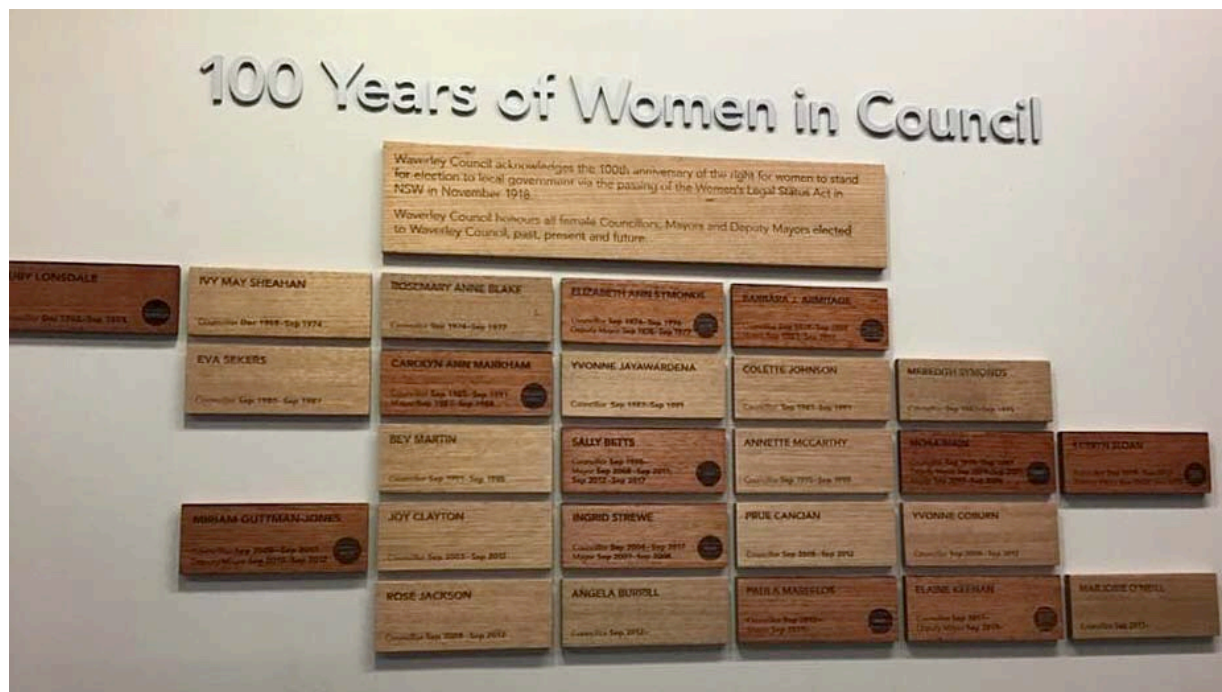 100 Years of Women in Council
Waverley Council acknowledges the 100th anniversary of the right for women to stand
for election to local government via the passing of the Women's Legal Status Act in
NSW in November 1918.
Waverley Council honours all female Councillors, Mayors and Deputy Mayors elected
to Waverley Council, past, present and future.
LONSDALE
IVY MAY SHEAHAN
Councillor Dec 1968-Sep 1974
ROSEMARY ANNE BLAKE
Councillor Sep 1974-Sep 1977
ELIZABETH ANN SYMONDS
Councillor Sep 1974-Sep
Deputy Mayor Sep 1976-Sep 1977
BARBARA J. ARMITAGE
Councillor Sep
EVA SEKERS
Councillor Sep 1980-Sep 1987
CAROLYN ANN MARKHAM
Councillor Sep 1983-Sep 1991
Mayor Sep 1987-Sep 1988
YVONNE JAYAWARDENA
Councillor Sep 1987-Sep 1991
COLETTE JOHNSON
Councillor Sep 1987-Sep 1991
MEREDITH SYMONDS
Councillor Sep
BEV MARTIN
Councillor Sep 1991-Sep 1995
SALLY BETTS
Councillor Sep 1995-
Mayor Sep 2008-Sep 2011,
Sep 2012-Sep 2017
ANNETTE MCCARTHY
Councillor Sep 1995-Sep 1999
MORA MAIN
SLOAN
MIRIAM GUTTMAN-JONES
Councillor Sep
Deputy Mayor Sep
JOY CLAYTON
Councillor Sep 2003-Sep 2012
INGRID STREWE
Councillor Sep 2004-Sep 2017
Mayor Sep 2007-Sep 2008
PRUE CANCIAN
Councillor Sep 2008-Sep 2012
YVONNE COBURN
Councillor Sep 2008-Sep 2012
ROSE JACKSON
Councillor Sep 2008-Sep 2012
ANGELA BURRILL
Councillor Sep 2012-
PAULA MASSELOS
Councillor Sep 2012-
ELAINE KEENAN
Councillor Sep 2017-
Deputy Mayor Sep
MARJORIE O'NEILL
Councillor Sep 2017-